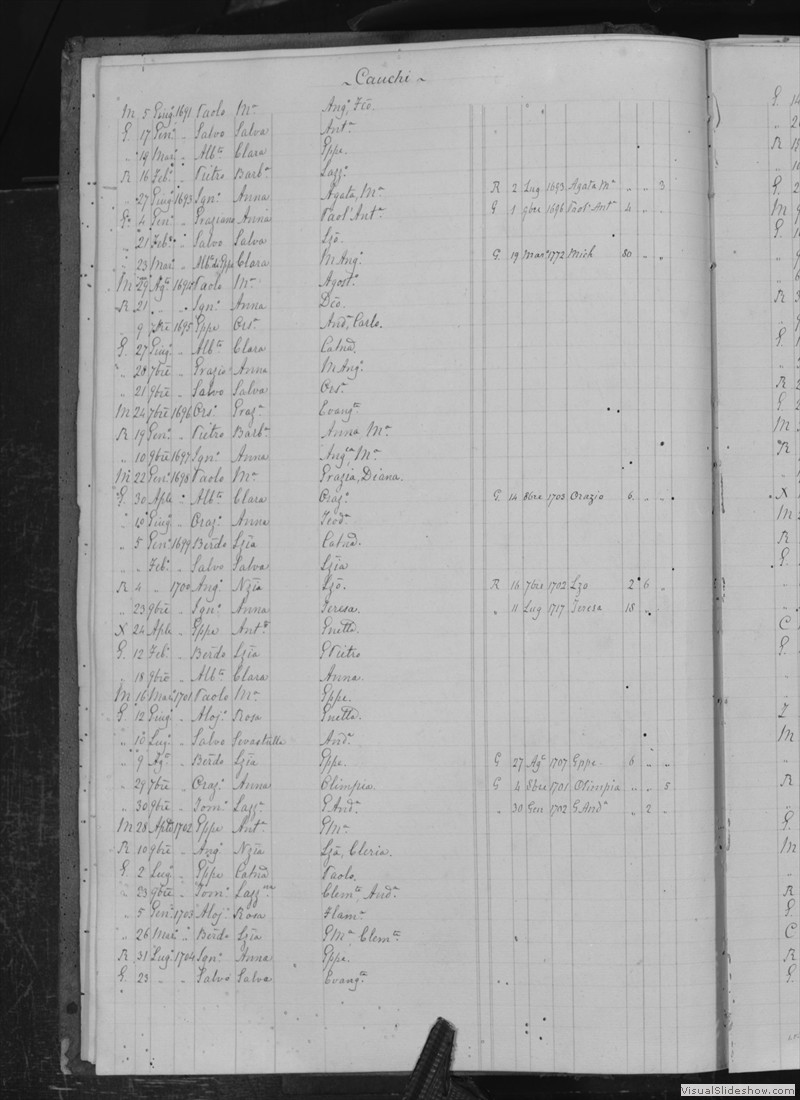 ~ Cauchi ~
M 5 Giug. 1691 Paolo Mª Ang. Fco.
G. 17 Gen. „ Salvo Salva Antª
„ 14 Mar. „ Albᵗᵒ Clara Gppe.
R 16 Feb. „ Pietro Barbª Lazzº
„ 27 Giug. 1693 Ignº Anna Agata, Mª R 2 Lug. 1693 Agata Mª „ „ 3
G. 4 Gen. „ Graziano Anna Paolº Antª G 1 9bre 1696 Paolº Antº 4 „ „
„ 21 Feb. „ Salvo Salva Lzo.
„ 23 Mar. „ Albᵗᵒ di Gppe Clara M Ang. G. 19 Mar. 1772 Mich 80 „ „
M 29 Agº Paolo Mª Agostº
R 21 „ „ Ignº Anna Dco.
„ 9 7bre 1695 Gppe Orsª Andª, Carlo.
G. 27 Giug. „ Albᵗᵒ Clara Catnᵃ.
„ 28 7bre „ Grazio Anna M Ang.
„ 21 9bre „ Salvo Salva Orsª
M 24 7bre 1696 Orsº Grazª Evangᵗᵃ
R 19 Gen. „ Pietro Barbª Anna, Mª
„ 10 9bre 1697 Ignº Anna Angª, Mª
M 22 Gen. 1698 Paolo Mª Grazia, Diana.
G. 30 Aple „ Albᵗᵒ Clara Orazº G. 14 8bre 1703 Orazio 6 „ „
„ 10 Giug. „ Orazº Anna Teodª
„ 5 Gen. 1699 Berdo Lzia Catnᵃ.
„ „ Feb. „ Salvo Salva Lzia
R 4 „ 1700 Ang. Nzia Lzo. R 16 7bre 1702 Lzo 2 6 „
„ 23 9bre „ Ignº Anna Teresa. „ 11 Lug 1717 Teresa 18 „
X 24 Aple „ Gppe Antª Gnetta.
G. 12 Feb. „ Berdo Lzia G Pietro
„ 18 9bre „ Albᵗᵒ Clara Anna.
M 16 Mar. 1701 Paolo Mª Gppe.
G. 12 Giug. „ Alojº Rosa Gnetta.
„ 10 Lug. „ Salvo Sevastella Andª
„ 9 Agº „ Berdo Lzia Gppe. G 27 Agº 1707 Gppe. 6 „ „
„ 29 7bre „ Orazº Anna Olimpia. G 4 8bre 1701 Olimpia „ „ 5
„ 30 9bre „ Tomº Lazzª G Andª „ 30 Gen 1702 G. Andª „ 2 „
M 28 Aple 1702 Gppe Antª G Mª
R 10 9bre „ Ang. Nzia Lza, Cleria.
G 2 Lug. „ Gppe Catnᵃ Paolo.
„ 23 9bre „ Tomº Lazzª Clemᵗᵉ, Andª
„ 5 Gen. 1703 Alojº Rosa Flamª
„ 26 Mar. „ Berdo Lzia G Mª Clemᵗᵉ
R 31 Lug. 1704 Ignº Anna Gppa.
G. 23 „ „ Salvo Salva Evangᵗᵃ
VisualSlideshow.com